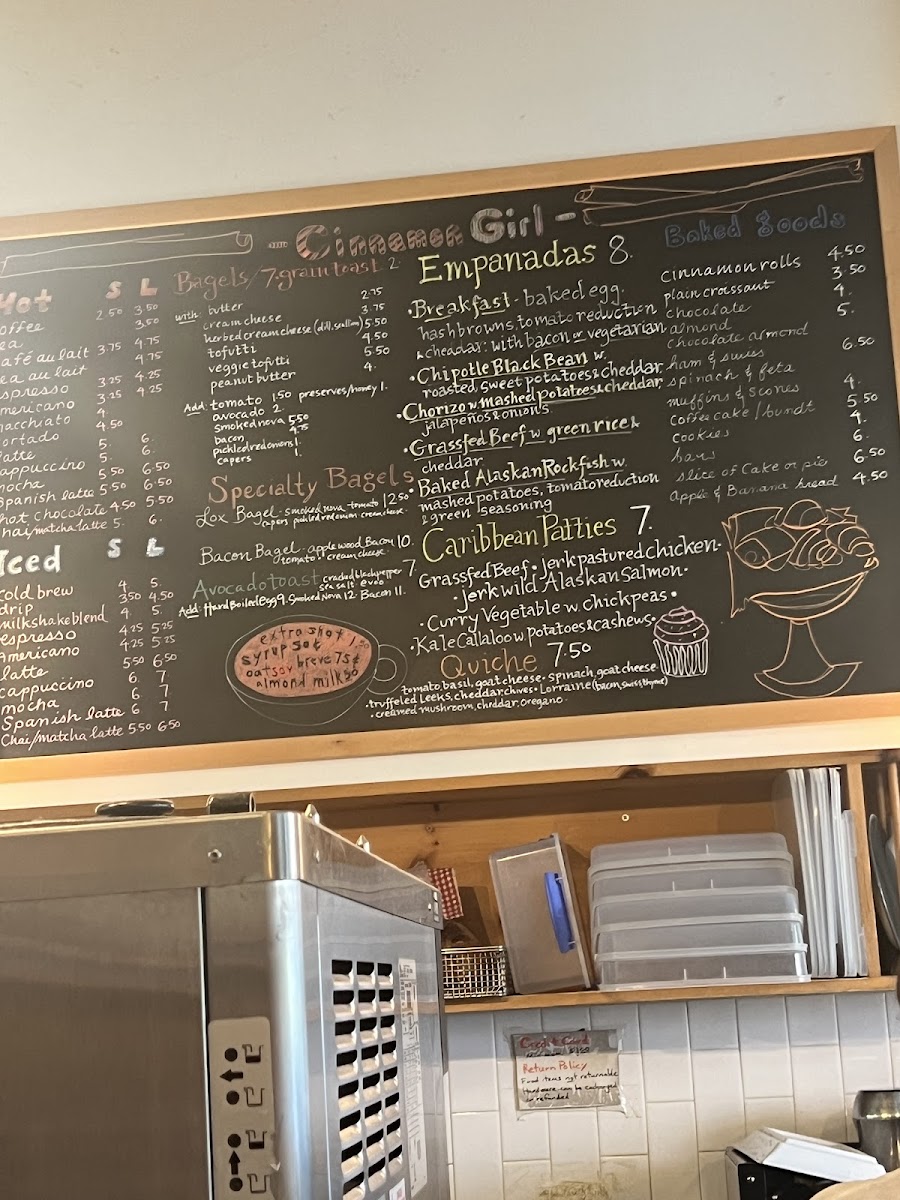 Cinnamon Girl
Hot S L
offee 2.50 3.50
ea 3.50
afé au lait 3.75 4.75
ea au lait 4.75
espresso 3.25 4.25
mericano 3.25 4.25
acchiato 4.
ortado 4.50
atte 5. 6.
appuccino 5. 6.
ocha 5.50 6.50
Spanish latte 5.50 6.50
hot chocolate 4.50 5.50
hai/matcha latte 5. 6.
Iced S L
cold brew 4. 5.
drip 3.50 4.50
milkshake blend 4. 5.
espresso 4.25 5.25
Americano 4.25 5.25
latte 5.50 6.50
cappuccino 6. 7
mocha 6 7
Spanish latte 6 7
Chai/matcha latte 5.50 6.50
Bagels/7-grain toast 2.
with: butter 2.75
cream cheese 3.75
herbed cream cheese (dill, scallion) 5.50
tofutti 4.50
veggie tofutti 5.50
peanut butter 4.
Add: tomato 1.50 preserves/honey 1.
avocado 2.
smoked nova 5.50
bacon 4.75
pickled red onions 1.
capers 1.
Specialty Bagels
Lox Bagel - smoked nova - tomato 12.50
capers pickled red onion cream cheese
Bacon Bagel - applewood Bacon 10.
tomato cream cheese
Avocado toast cracked black pepper 7.
sea salt evoo
Add: Hard Boiled egg 9. Smoked Nova 12. Bacon 11.
extra shot 1.50
syrup 50¢
oat soy breve 75¢
almond milk 50
Empanadas 8.
• Breakfast - baked egg.
hash browns, tomato reduction
& cheddar: with bacon or vegetarian
• Chipotle Black Bean w.
roasted sweet potatoes & cheddar
• Chorizo w mashed potatoes & cheddar
jalapeños & onions
• Grassfed Beef w green rice &
cheddar
• Baked Alaskan Rockfish w.
mashed potatoes, tomato reduction
& green seasoning
Caribbean Patties 7.
Grassfed Beef • Jerk pastured chicken •
• Jerk wild Alaskan Salmon •
• Curry Vegetable w. chickpeas •
• Kale Callaloo w potatoes & cashews •
Quiche 7.50
tomato, basil, goat cheese • spinach, goat cheese
• truffeled leeks, cheddar, chives • Lorraine (bacon, swiss, thyme)
• creamed mushroom, cheddar, oregano
Baked Goods
cinnamon rolls 4.50
plain croissant 3.50
chocolate 4.
almond 5.
chocolate almond
ham & swiss 6.50
spinach & feta
muffins & scones 4.
coffee cake/bundt 5.50
cookies 4.
bars 6.
slice of cake or pie 6.50
apple & Banana bread 4.50
Credit Card
Return Policy
Food items not returnable
Hardware can be exchanged
or refunded